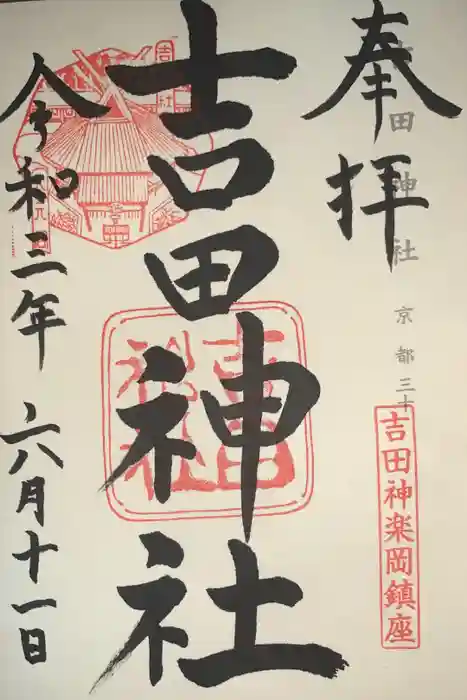 奉拝
吉田神社 京都三十
吉田神楽岡鎮座
吉田神社
吉田神社
令和三年 六月十一日